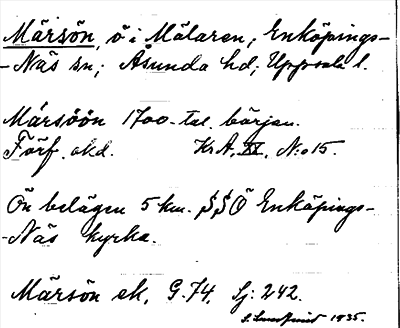 Märsön, ö i Mälaren; Enköpings-
-Näs sn; Åsunda hd; Uppsala l.
Märsöön 1700-tal. början.
Förf. okd. Kr A. XV, N:o 15.
Ön belägen 5 km. SSÖ Enköpings-
-Näs kyrka.
Märsön ek. G. 74. Sj: 242.
1935.